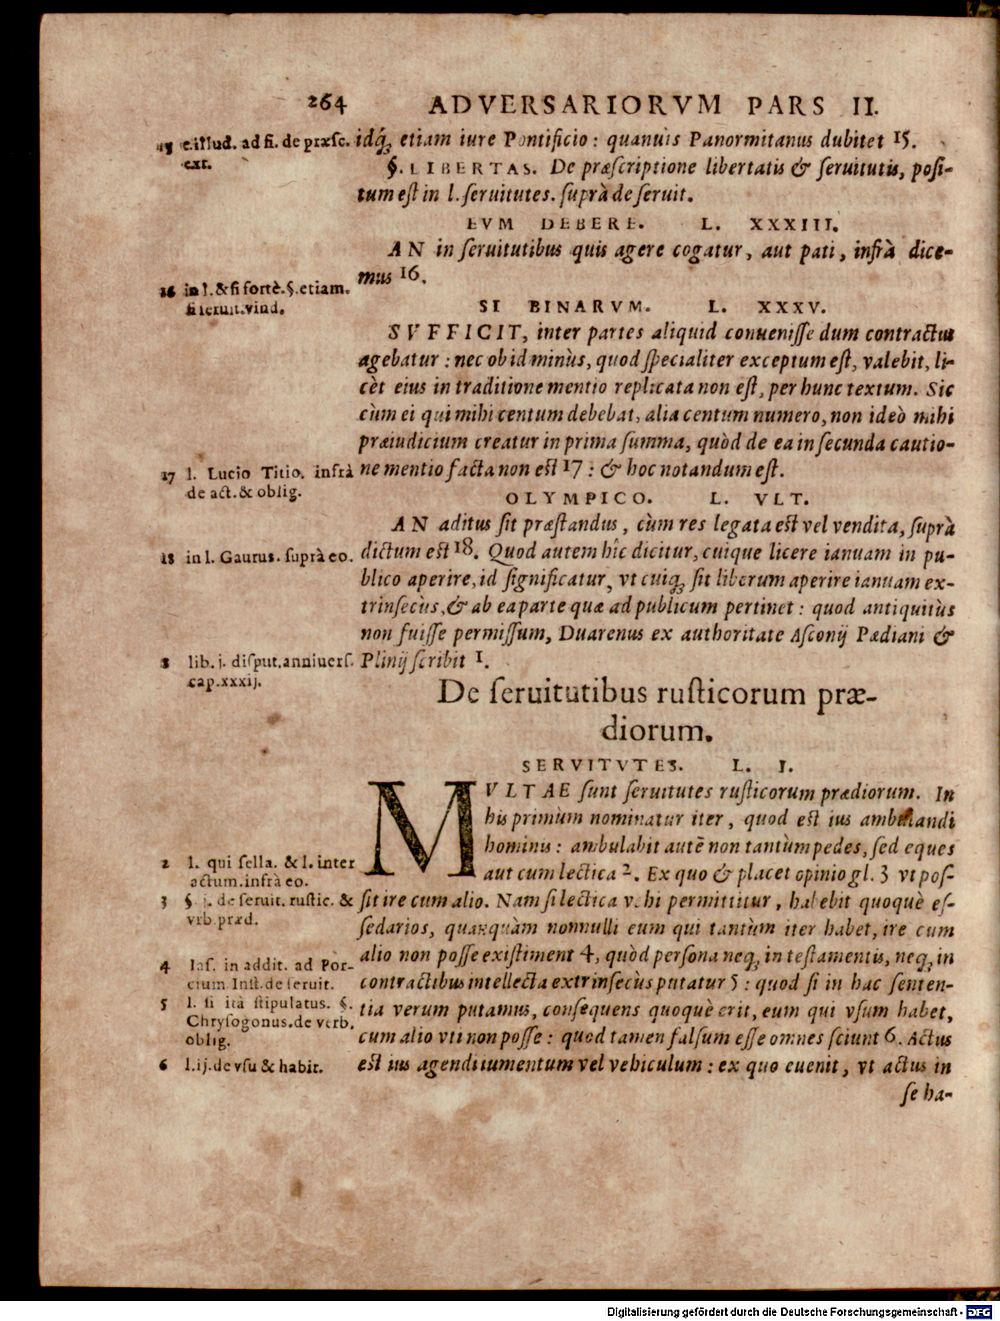 264 ADVERSARIORVM PARS II.
idq́; etiam iure Pontificio: quanuis Panormitanus dubitet 15.
§. LIBERTAS. De præscriptione libertatis & seruitutis, posi-
tum est in l. seruitutes. suprà de seruit.
EVM DEBERE. L. XXXIII.
AN in seruitutibus quis agere cogatur, aut pati, infrà dice-
mus 16.
SI BINARVM. L. XXXV.
SVFFICIT, inter partes aliquid conuenisse dum contractus
agebatur: nec ob id minùs, quod specialiter exceptum est, valebit, li-
cèt eius in traditione mentio replicata non est, per hunc textum. Sic
cùm ei qui mihi centum debebat, alia centum numero, non ideò mihi
præiudicium creatur in prima summa, quòd de ea in secunda cautio-
ne mentio facta non est 17: & hoc notandum est.
OLYMPICO. L. VLT.
AN aditus sit præstandus, cùm res legata est vel vendita, suprà
dictum est 18. Quod autem hîc dicitur, cuique licere ianuam in pu-
blico aperire, id significatur, vt cuiq; sit liberum aperire ianuam ex-
trinsecùs, & ab ea parte quæ ad publicum pertinet: quod antiquitùs
non fuisse permissum, Duarenus ex authoritate Asconij Pædiani &
Plinij scribit 1.
De seruitutibus rusticorum præ-
diorum.
SERVITVTES. L. I.
MVLTAE sunt seruitutes rusticorum prædiorum. In
his primùm nominatur iter, quod est ius ambulandi
hominis: ambulabit autē non tantùm pedes, sed eques
aut cum lectica 2. Ex quo & placet opinio gl. 3 vt pos-
sit ire cum alio. Nam si lectica vehi permittitur, habebit quoquè es-
sedarios, quanquàm nonnulli eum qui tantùm iter habet, ire cum
alio non posse existiment 4, quòd persona neq; in testamentis, neq; in
contractibus intellecta extrinsecùs putatur 5: quod si in hac senten-
tia verum putamus, consequens quoquè erit, eum qui vsum habet,
cum alio vti non posse: quod tamen falsum esse omnes sciunt 6. Actus
est ius agendi iumentum vel vehiculum: ex quo euenit, vt actus in
se ha-
15 c. illud. ad fi. de præsc.
ext.
16 in l. & si fortè. §. etiam.
si seruit. vind.
17 l. Lucio Titio. infrà
de act. & oblig.
18 in l. Gaurus. suprà eo.
1 lib. j. disput. anniuers.
cap. xxxij.
2 l. qui sella. & l. inter
actum. infrà eo.
3 §. j. de seruit. rustic. &
vrb. præd.
4 Ias. in addit. ad Por-
cium Inst. de seruit.
5 l. si ità stipulatus. §.
Chrysogonus. de verb.
oblig.
6 l. ij. de vsu & habit.
Digitalisierung gefördert durch die Deutsche Forschungsgemeinschaft - DFG